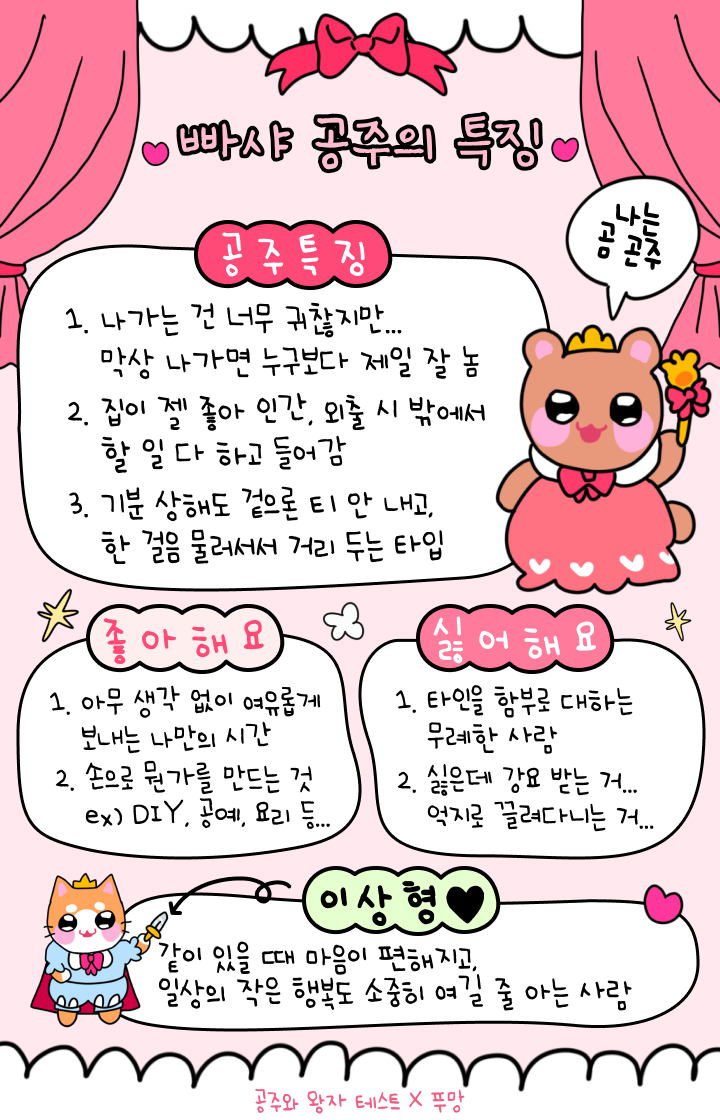 빠샤 공주의 특징
나는
곰 곤주
공주특징
1. 나가는 건 너무 귀찮지만...
막상 나가면 누구보다 제일 잘 놈
2. 집이 젤 좋아 인간, 외출 시 밖에서
할 일 다 하고 들어감
3. 기분 상해도 겉으론 티 안 내고,
한 걸음 물러서서 거리 두는 타입
좋아해요
1. 아무 생각 없이 여유롭게
보내는 나만의 시간
2. 손으로 뭔가를 만드는 것
ex) DIY, 공예, 요리 등...
싫어해요
1. 타인을 함부로 대하는
무례한 사람
2. 싫은데 강요 받는 거...
억지로 끌려다니는 거...
이상형♥
같이 있을 때 마음이 편해지고,
일상의 작은 행복도 소중히 여길 줄 아는 사람
공주와 왕자 테스트 X 푸망